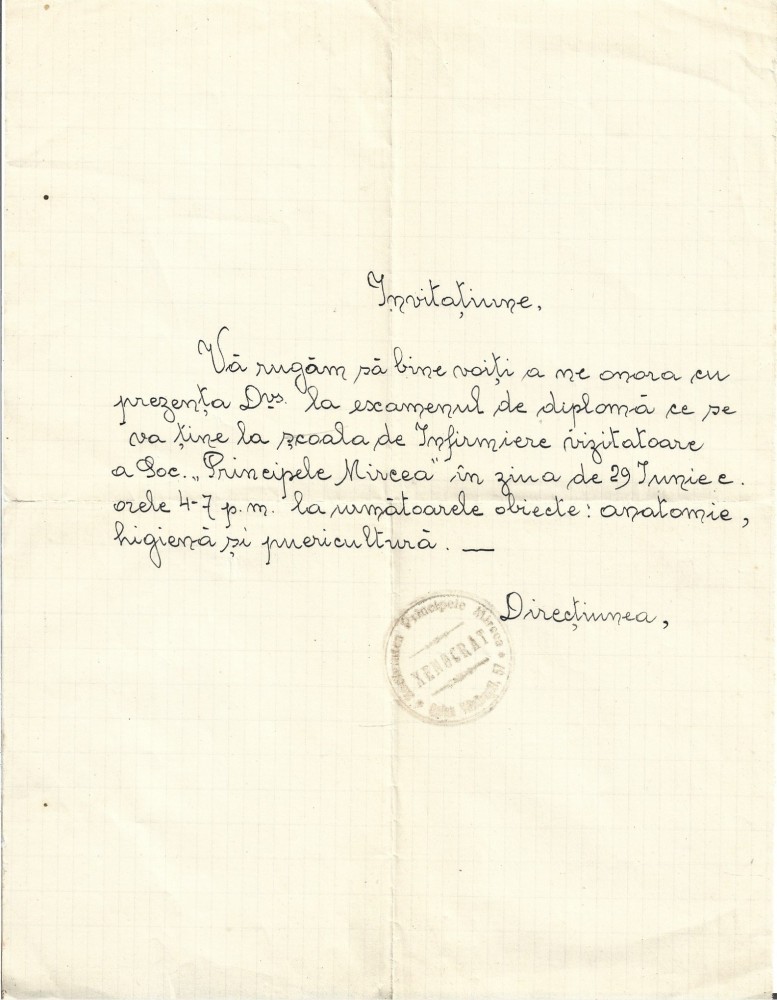 Invitațiune,
Vă rugăm să bine voiți a ne onora cu
prezența Dvs. la examenul de diplomă ce se
va ține la școala de Infirmiere vizitatoare
a Soc. „Principele Mircea" în ziua de 29 Iunie c.
orele 4-7 p.m. la următoarele obiecte: anatomie,
higienă și puericultură. —
Direcțiunea,
Principele Mircea
XENOCRAT
57